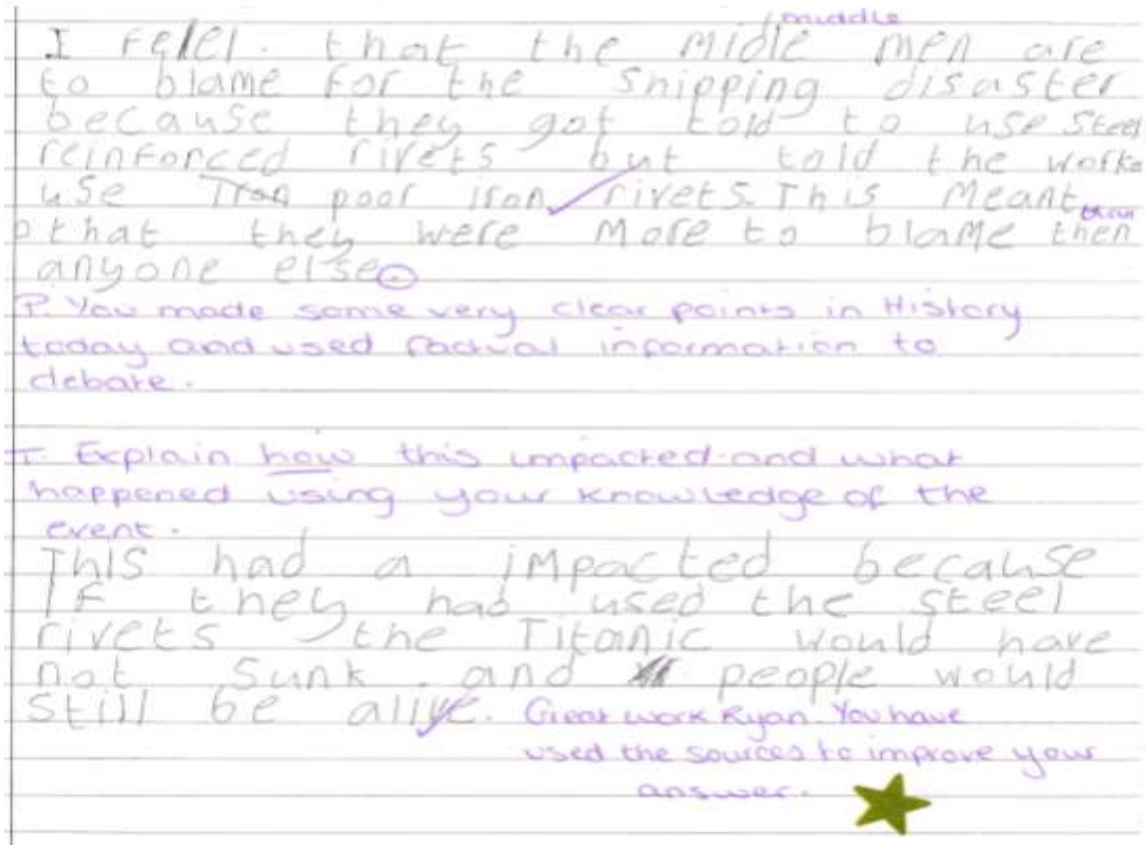 middle
I feel. that the midle men are
to blame for the snipping disaster
because they got told to use steel
reinforced rivets but told the worke
use Iron poor iron rivets. This meant
than
that they were more to blame then
anyone else.
P. You made some very clear points in History
today and used factual information to
debate.
T. Explain how this impacted and what
happened using your knowledge of the
event.
This had a impacted because
If they had used the steel
rivets the Titanic would have
not sunk and people would
still be alive. Great work Ryan. You have
used the sources to improve your
answer.